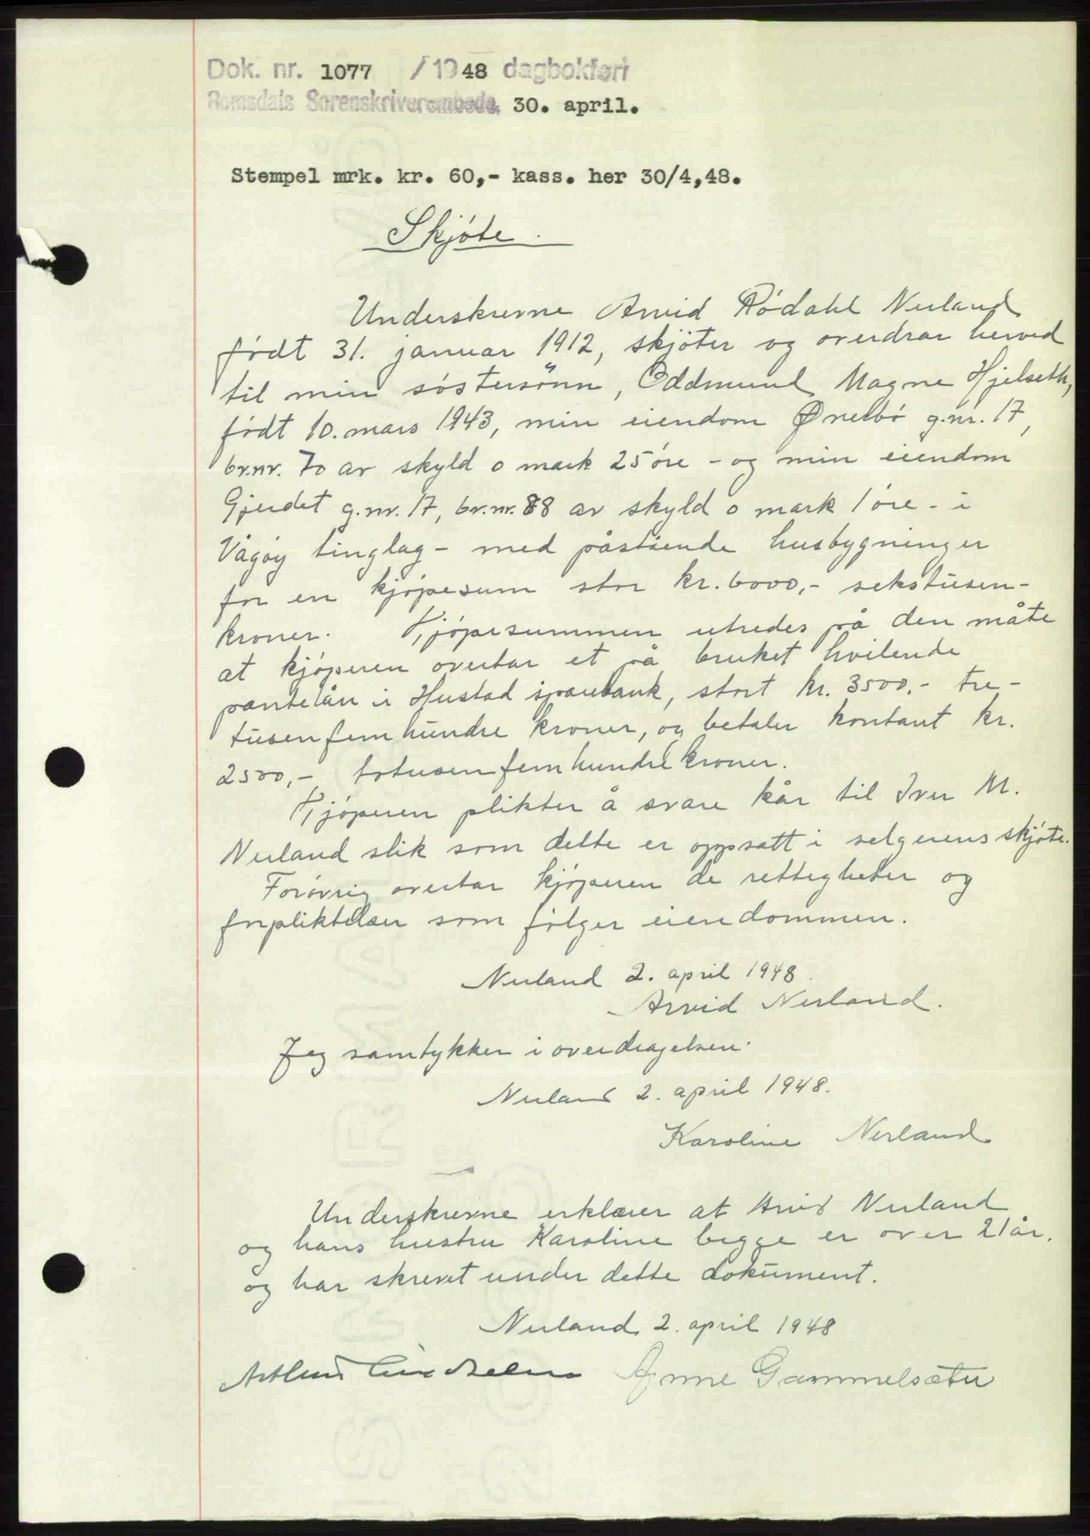 Dok. nr. 1077 /1948 dagbokført
Romsdals Sorenskriverembede, 30. april.
Stempel mrk. kr. 60,- kass. her 30/4,48.
Skjöte.
Underskrevne Arvid Rødahl Nerland
født 31. januar 1912, skjöter og overdrar herved
til min søstersönn, Oddmund Magne Hjelseth,
födt 10. mars 1943, min eiendom Ønelbö g.nr. 17,
br.nr. 70 av skyld 0 mark 25 öre - og min eiendom
Gjerdet g.nr. 17, br.nr. 88 av skyld 0 mark 1 öre - i
Vågöy tinglag - med påstående husbygninger
for en kjöpesum stor kr. 6000,- sekstusen-
kroner. Kjöpesummen utredes på den måte
at kjöperen overtar et på bruket hvilende
pantelån i Hustad sparebank, stort kr. 3500.- tre-
tusenfemhundre kroner, og betaler kontant kr.
2500,- totusenfemhundre kroner.
Kjöperen plikter å svare kår til Iver M.
Nerland slik som dette er oppsatt i selgerens skjöte.
Forövrig overtar kjöperen de rettigheter og
forpliktelser som fölger eiendommen.
Nerland 2. april 1948.
Arvid Nerland.
Jeg samtykker i overdragelsen.
Nerland 2. april 1948.
Karoline Nerland
Underskrevne erklærer at Arvid Nerland
og hans hustru Karoline begge er over 21 år.
og har skrevet under dette dokument.
Nerland 2. april 1948
Anne Gammelsæter